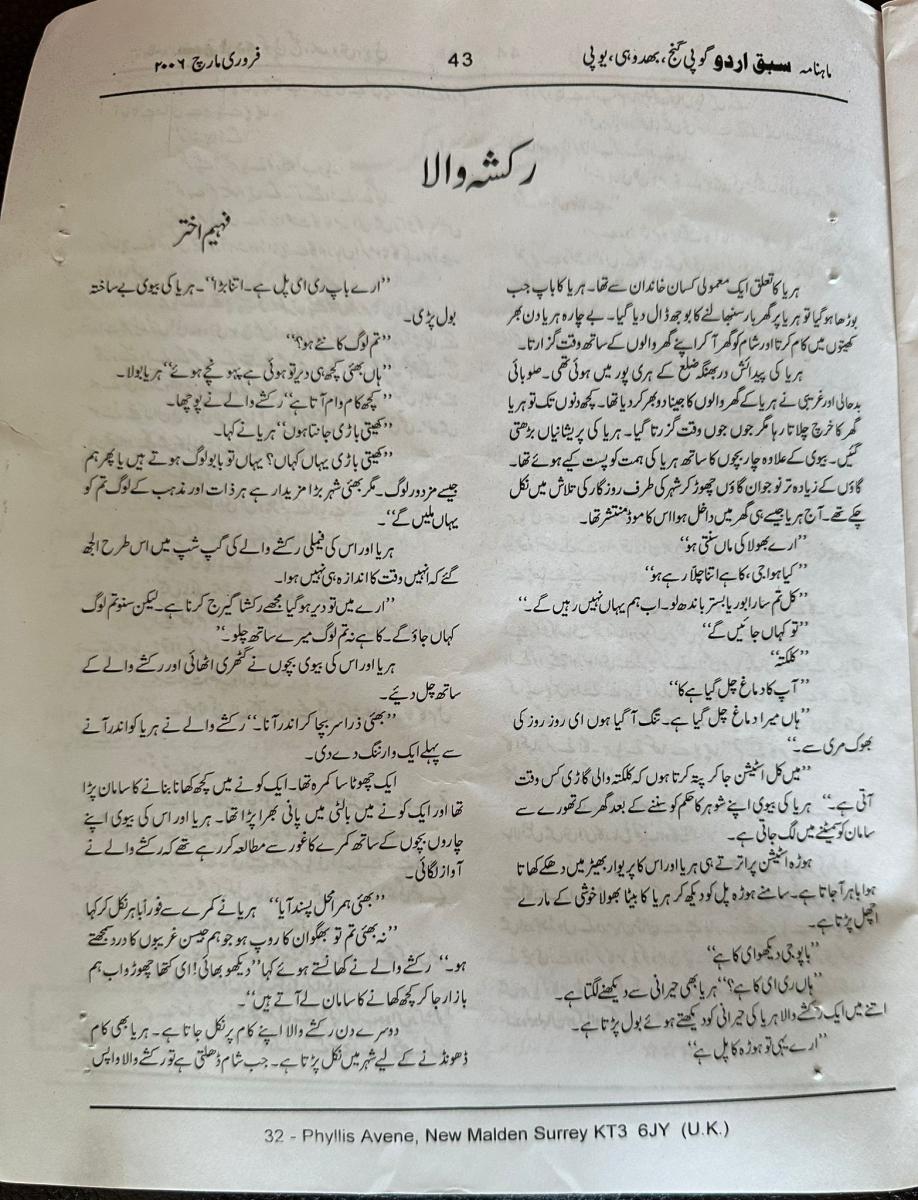 ماہنامہ سبق اردو گوپی گنج، بھدوہی، یوپی
43
فروری مارچ ۲۰۰۶
رکشہ والا
فہیم اختر
ہریا کا تعلق ایک معمولی کسان خاندان سے تھا۔ ہریا کا باپ جب
بوڑھا ہو گیا تو ہریا پر گھر بار سنبھالنے کا بوجھ ڈال دیا گیا۔ بے چارہ ہریا دن بھر
کھیتوں میں کام کرتا اور شام کو گھر آ کر اپنے گھر والوں کے ساتھ وقت گزارتا۔
ہریا کی پیدائش دربھنگہ ضلع کے ہری پور میں ہوئی تھی۔ صلوبائی
بدحالی اور غریبی نے ہریا کے گھر والوں کا جینا دوبھر کر دیا تھا۔ کچھ دنوں تک تو ہریا
گھر کا خرچ چلاتا رہا مگر جوں جوں وقت گزرتا گیا۔ ہریا کی پریشانیاں بڑھتی
گئیں۔ بیوی کے علاوہ چار بچوں کا ساتھ ہریا کی ہمت کو پست کیے ہوئے تھا۔
گاؤں کے زیادہ تر نوجوان گاؤں چھوڑ کر شہر کی طرف روزگار کی تلاش میں نکل
چکے تھے۔ آج ہریا جیسے ہی گھر میں داخل ہوا اس کا موڈ منتشر تھا۔
”ارے بھولا کی ماں سنتی ہو“
”کیا ہوا جی، کاہے اتنا چلّا رہے ہو“
”کل تم سارا بوریا بستر باندھ لو۔ اب ہم یہاں نہیں رہیں گے۔“
”تو کہاں جائیں گے“
”کلکتہ“
”آپ کا دماغ چل گیا ہے کا“
”ہاں میرا دماغ چل گیا ہے۔ تنگ آ گیا ہوں ای روز روز کی
بھوک مری سے۔“
”میں کل اسٹیشن جا کر پتہ کرتا ہوں کہ کلکتہ والی گاڑی کس وقت
آتی ہے۔“ ہریا کی بیوی اپنے شوہر کا حکم کو سننے کے بعد گھر کے تھورے سے
سامان کو سمیٹنے میں لگ جاتی ہے۔
ہوڑہ اسٹیشن پر اترتے ہی ہریا اور اس کا پریوار بھیڑ میں دھکے کھاتا
ہوا باہر آ جاتا ہے۔ سامنے ہوڑہ پل کو دیکھ کر ہریا کا بیٹا بھولا خوشی کے مارے
اچھل پڑتا ہے۔
”باپو جی دیکھو ای کا ہے“
”ہاں ری ای کا ہے؟“ ہریا بھی حیرانی سے دیکھنے لگتا ہے۔
اتنے میں ایک رکشے والا ہریا کی حیرانی کو دیکھتے ہوئے بول پڑتا ہے۔
”ارے یہی تو ہوڑہ کا پل ہے“
”ارے باپ ری ای پل ہے۔ اتنا بڑا“۔ ہریا کی بیوی بے ساختہ
بول پڑی۔
”تم لوگ کا نئے ہو؟“
”ہاں بھئی کچھ ہی دیر تو ہوئی ہے پہونچے ہوئے“ ہریا بولا۔
”کچھ کام وام آتا ہے“ رکشے والے نے پوچھا۔
”کھیتی باڑی جانتا ہوں“ ہریا نے کہا۔
”کھیتی باڑی یہاں کہاں؟ یہاں تو بابو لوگ ہوتے ہیں یا پھر ہم
جیسے مزدور لوگ۔ مگر بھئی شہر بڑا مزیدار ہے ہر ذات اور مذہب کے لوگ تم کو
یہاں ملیں گے“۔
ہریا اور اس کی فیملی رکشے والے کی گپ شپ میں اس طرح الجھ
گئے کہ انہیں وقت کا اندازہ ہی نہیں ہوا۔
”ارے میں تو دیر ہو گیا مجھے رکشا گیرج کرنا ہے۔ لیکن سنو تم لوگ
کہاں جاؤ گے۔ کاہے نہ تم لوگ میرے ساتھ چلو۔“
ہریا اور اس کی بیوی بچوں نے گٹھری اٹھائی اور رکشے والے کے
ساتھ چل دیئے۔
”بھئی ذرا سر بچا کر اندر آنا۔“ رکشے والے نے ہریا کو اندر آنے
سے پہلے ایک وارننگ دے دی۔
ایک چھوٹا سا کمرہ تھا۔ ایک کونے میں کچھ کھانا بنانے کا سامان پڑا
تھا اور ایک کونے میں بالٹی میں پانی بھرا پڑا تھا۔ ہریا اور اس کی بیوی اپنے
چاروں بچوں کے ساتھ کمرے کا غور سے مطالعہ کر رہے تھے کہ رکشے والے نے
آواز لگائی۔
”بھئی ہمرا محل پسند آیا“ ہریا نے کمرے سے فوراً باہر نکل کر کہا
”نہ بھئی تم تو بھگوان کا روپ ہو جو ہم جیسن غریبوں کا درد سمجھتے
ہو۔“ رکشے والے نے کھانستے ہوئے کہا ”دیکھو بھائی! ای کتھا چھوڑو اب ہم
بازار جا کر کچھ کھانے کا سامان لے آتے ہیں“۔
دوسرے دن رکشے والا اپنے کام پر نکل جاتا ہے۔ ہریا بھی کام
ڈھونڈنے کے لیے شہر میں نکل پڑتا ہے۔ جب شام ڈھلتی ہے تو رکشے والا واپس
32 - Phyllis Avene, New Malden Surrey KT3 6JY (U.K.)